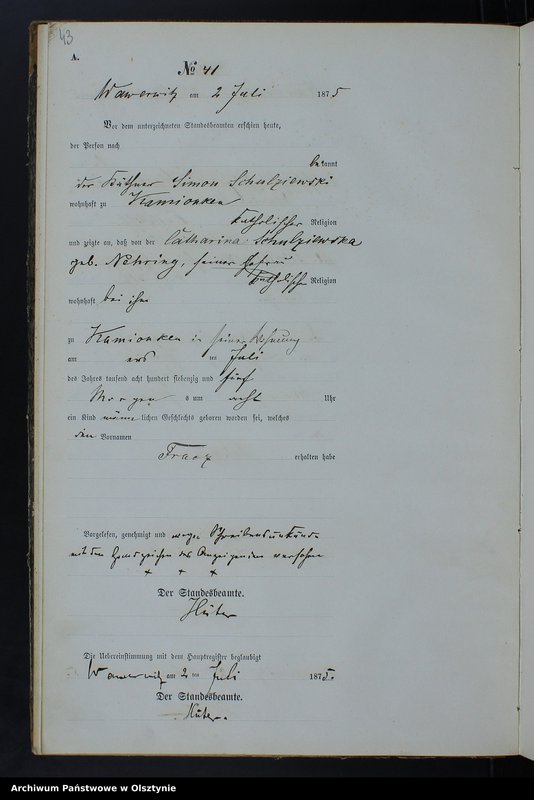 43
A.
№ 41
Wawerwitz am 2 Juli 1875
Vor dem unterzeichneten Standesbeamten erschien heute,
der Person nach
bekannt
der Käthner Simon Schulziewski
wohnhaft zu Kamionken
katholischer Religion
und zeigte an, daß von der Catharina Schulziewska
geb. Nehring, seiner Ehefrau
katholischer Religion
wohnhaft bei ihm
zu Kamionken in seiner Wohnung
am ersten Juli
des Jahres tausend acht hundert siebenzig und fünf
Morgens um acht Uhr
ein Kind männlichen Geschlechts geboren worden sei, welches
den Vornamen
Franz erhalten habe
Vorgelesen, genehmigt und wegen Schreibensunkunde
mit den Handzeichen des Anzeigenden versehen
+ + +
Der Standesbeamte.
Hüter
Die Uebereinstimmung mit dem Hauptregister beglaubigt
Wawerwitz am 2 ten Juli 1875.
Der Standesbeamte.
Hüter.
Archiwum Państwowe w Olsztynie